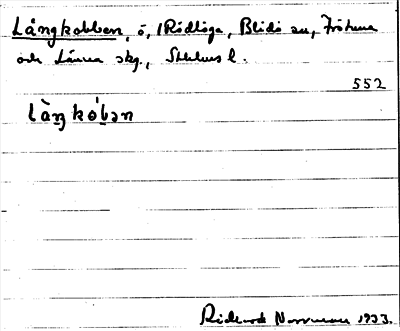 Långkobben, ö, i Rödlöga, Blidö sn, Frötuna
och Länna skg., Sthlms l.
552
làŋkób̥ən
Rickard Norrman 1933.